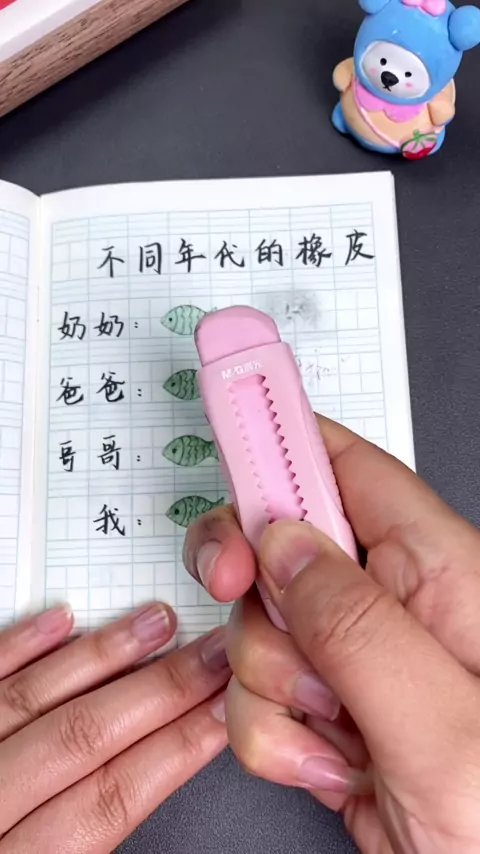 不同年代的橡皮
奶奶：
爸爸：
哥哥：
我：
M&G晨光